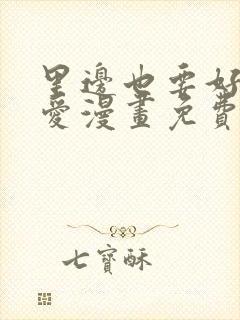 里邊也要好
愛漫畫免費
七寶酥